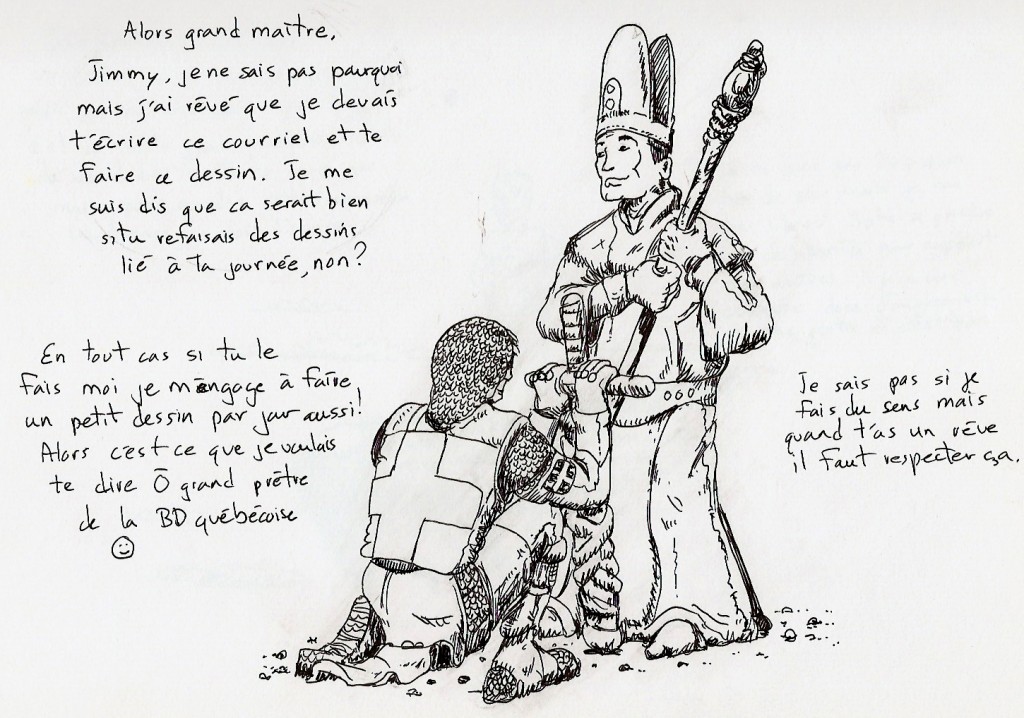 Alors grand maître,
Jimmy, je ne sais pas pourquoi
mais j'ai rêvé que je devais
t'écrire ce courriel et te
faire ce dessin. Je me
suis dis que ca serait bien
si tu refaisais des dessins
lié à ta journée, non?
En tout cas si tu le
fais moi je m'engage à faire
un petit dessin par jour aussi!
Alors c'est ce que je voulais
te dire Ô grand prêtre
de la BD québécoise
Je sais pas si je
fais du sens mais
quand t'as un rêve
il faut respecter ça.